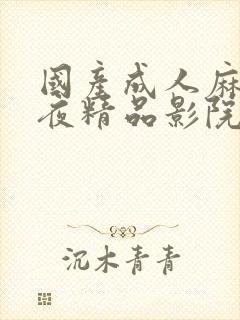 國產成人麻
夜精品影院
沉木青青